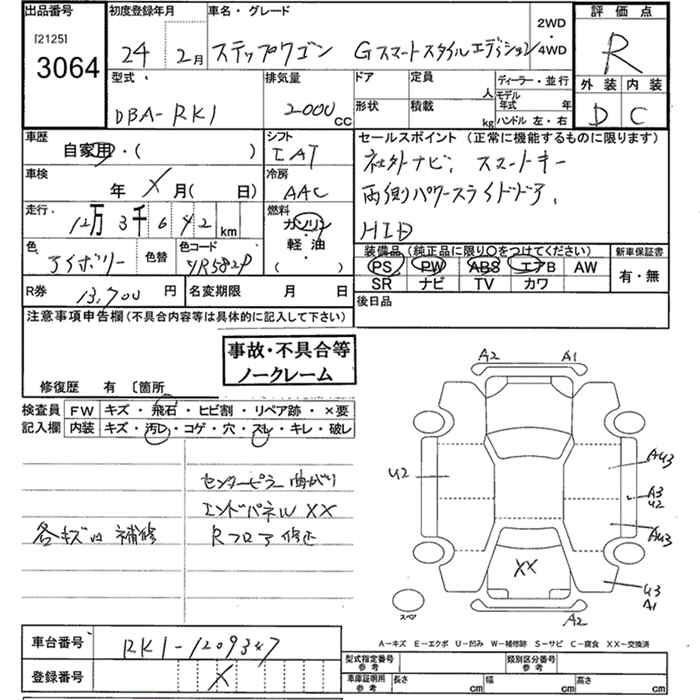 出品番号
[2125]
3064
初度登録年月
24 2月
車名・グレード
ステップワゴン Gスマートスタイルエディション
2WD
・
4WD
評価点
R
外装 内装
D C
型式
DBA-RK1
排気量
2000 cc
ドア
形状
定員
人
積載
kg
ディーラー・並行
モデル
年式 年
ハンドル 左・右
車歴
自家用・( )
シフト
IAT
セールスポイント (正常に機能するものに限ります)
社外ナビ、スマートキー
両側パワースライドドア、
HID
車検
年 X月(日)
冷房
AAC
走行
12万3千642 km
燃料
ガソリン
・
軽油
( )
色
アイボリー
色替
色コード
YR582P
装備品 (純正品に限り○をつけてください)
PS PW ABS エアB AW
SR ナビ TV カワ
新車保証書
有・無
R券 13,700 円
名変期限 月 日
後日品
注意事項申告欄 (不具合内容等は具体的に記入して下さい)
事故・不具合等
ノークレーム
修復歴 有 〔箇所
検査員
記入欄
FW キズ・飛石・ヒビ割・リペア跡・×要
内装 キズ・汚レ・コゲ・穴・スレ・キレ・破レ
センターピラー曲がり
エンドパネルXX
各キズ凹補修
Rフロア修正
A2 A1
U2
AU3
A3
U2
AU3
XX
U3
A1
A2
スペア
A-キズ E-エクボ U-凹み W-補修跡 S-サビ C-腐食 XX-交換済
車台番号 RK1-1209347
登録番号 X
型式指定番号
参考
類別区分番号
参考
車庫証明用
参考
長さ cm 幅 cm 高さ cm